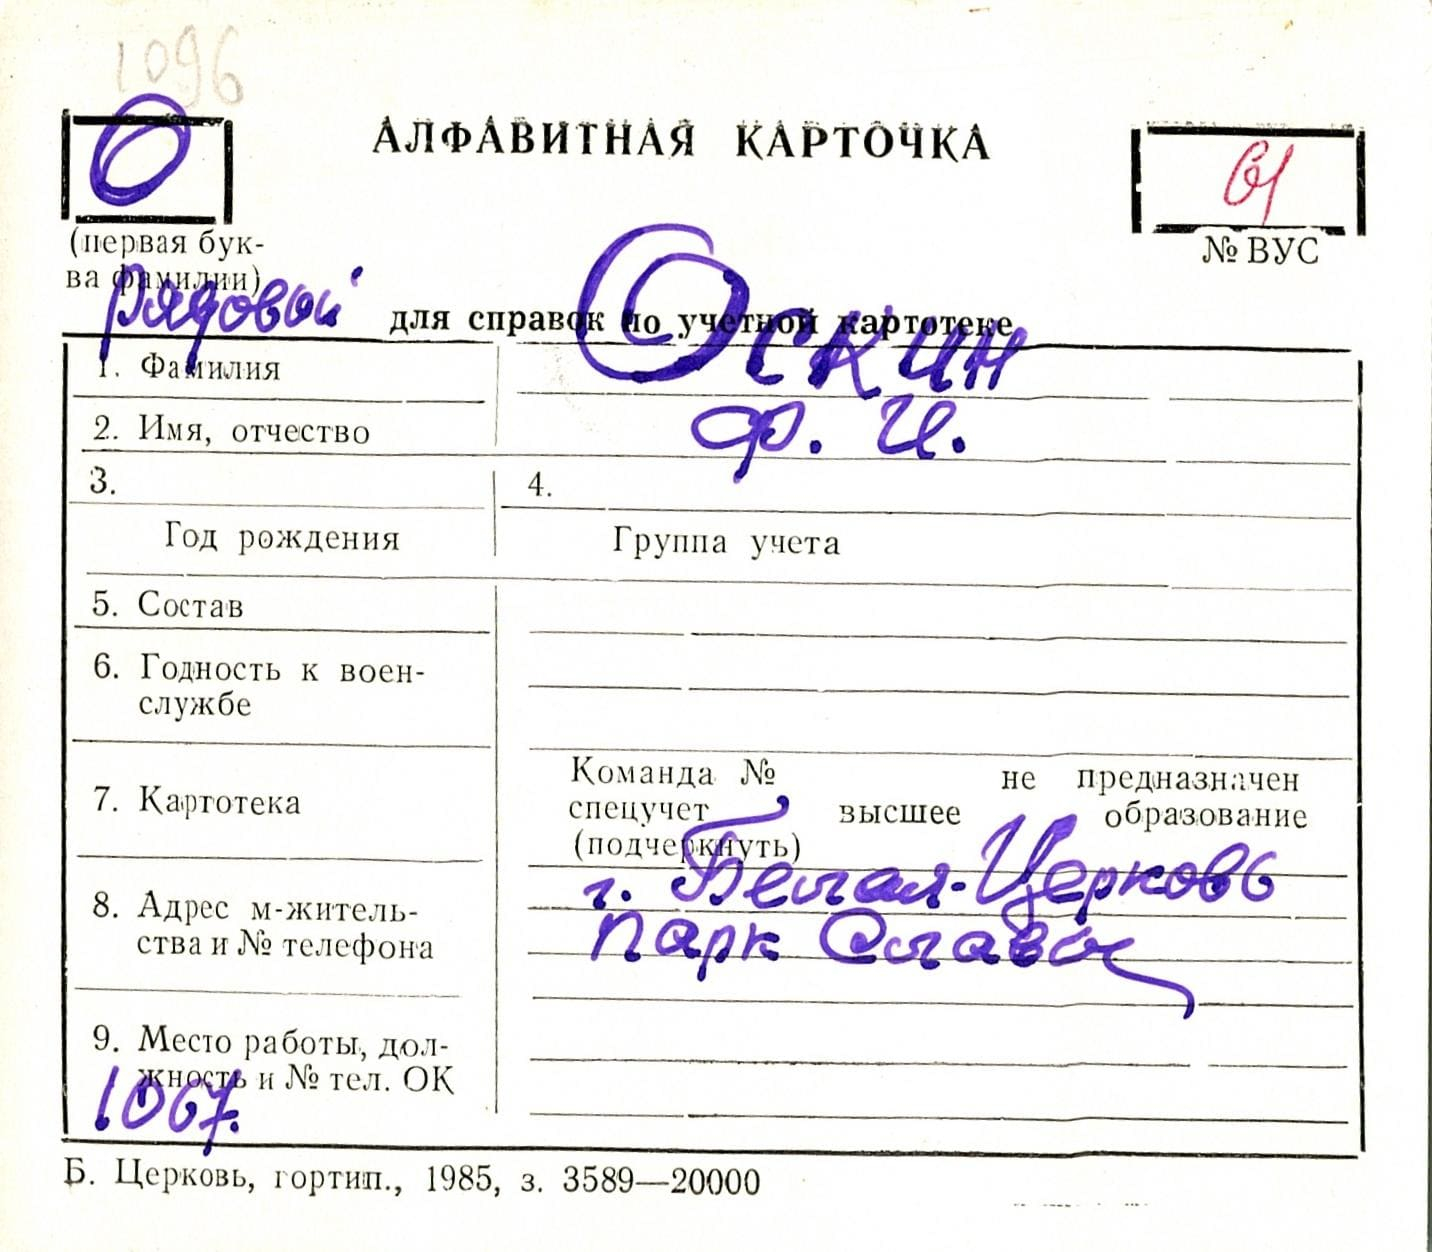 1096
О
АЛФАВИТНАЯ КАРТОЧКА
61
(первая бук-
ва фамилии)
№ ВУС
рядовой
для справок по учетной картотеке
1. Фамилия
Оскин
2. Имя, отчество
Ф. И.
3.
4.
Год рождения
Группа учета
5. Состав
6. Годность к воен-
службе
7. Картотека
Команда № не предназначен
спецучет высшее образование
(подчеркнуть)
8. Адрес м-житель-
ства и № телефона
г. Белая-Церковь
Парк Слава
9. Место работы, дол-
жность и № тел. ОК
1067.
Б. Церковь, гортип., 1985, з. 3589—20000